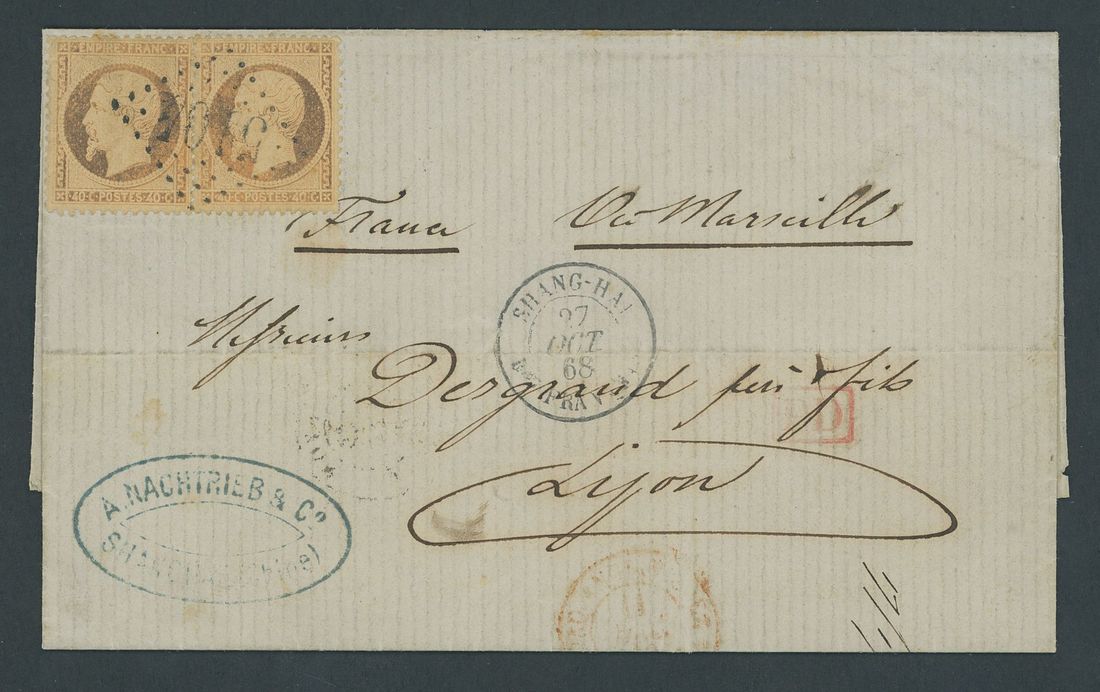 EMPIRE FRANC EMPIRE FRANC
5104
40·C·POSTES·40·C 40·C·POSTES·40·C
France Via Marseille
SHANG-HAI
27
OCT
68
Messieurs
Desgrand père & fils
PD
Lyon
A. NACHTRIEB & Co.
SHANGHAI (Chine)